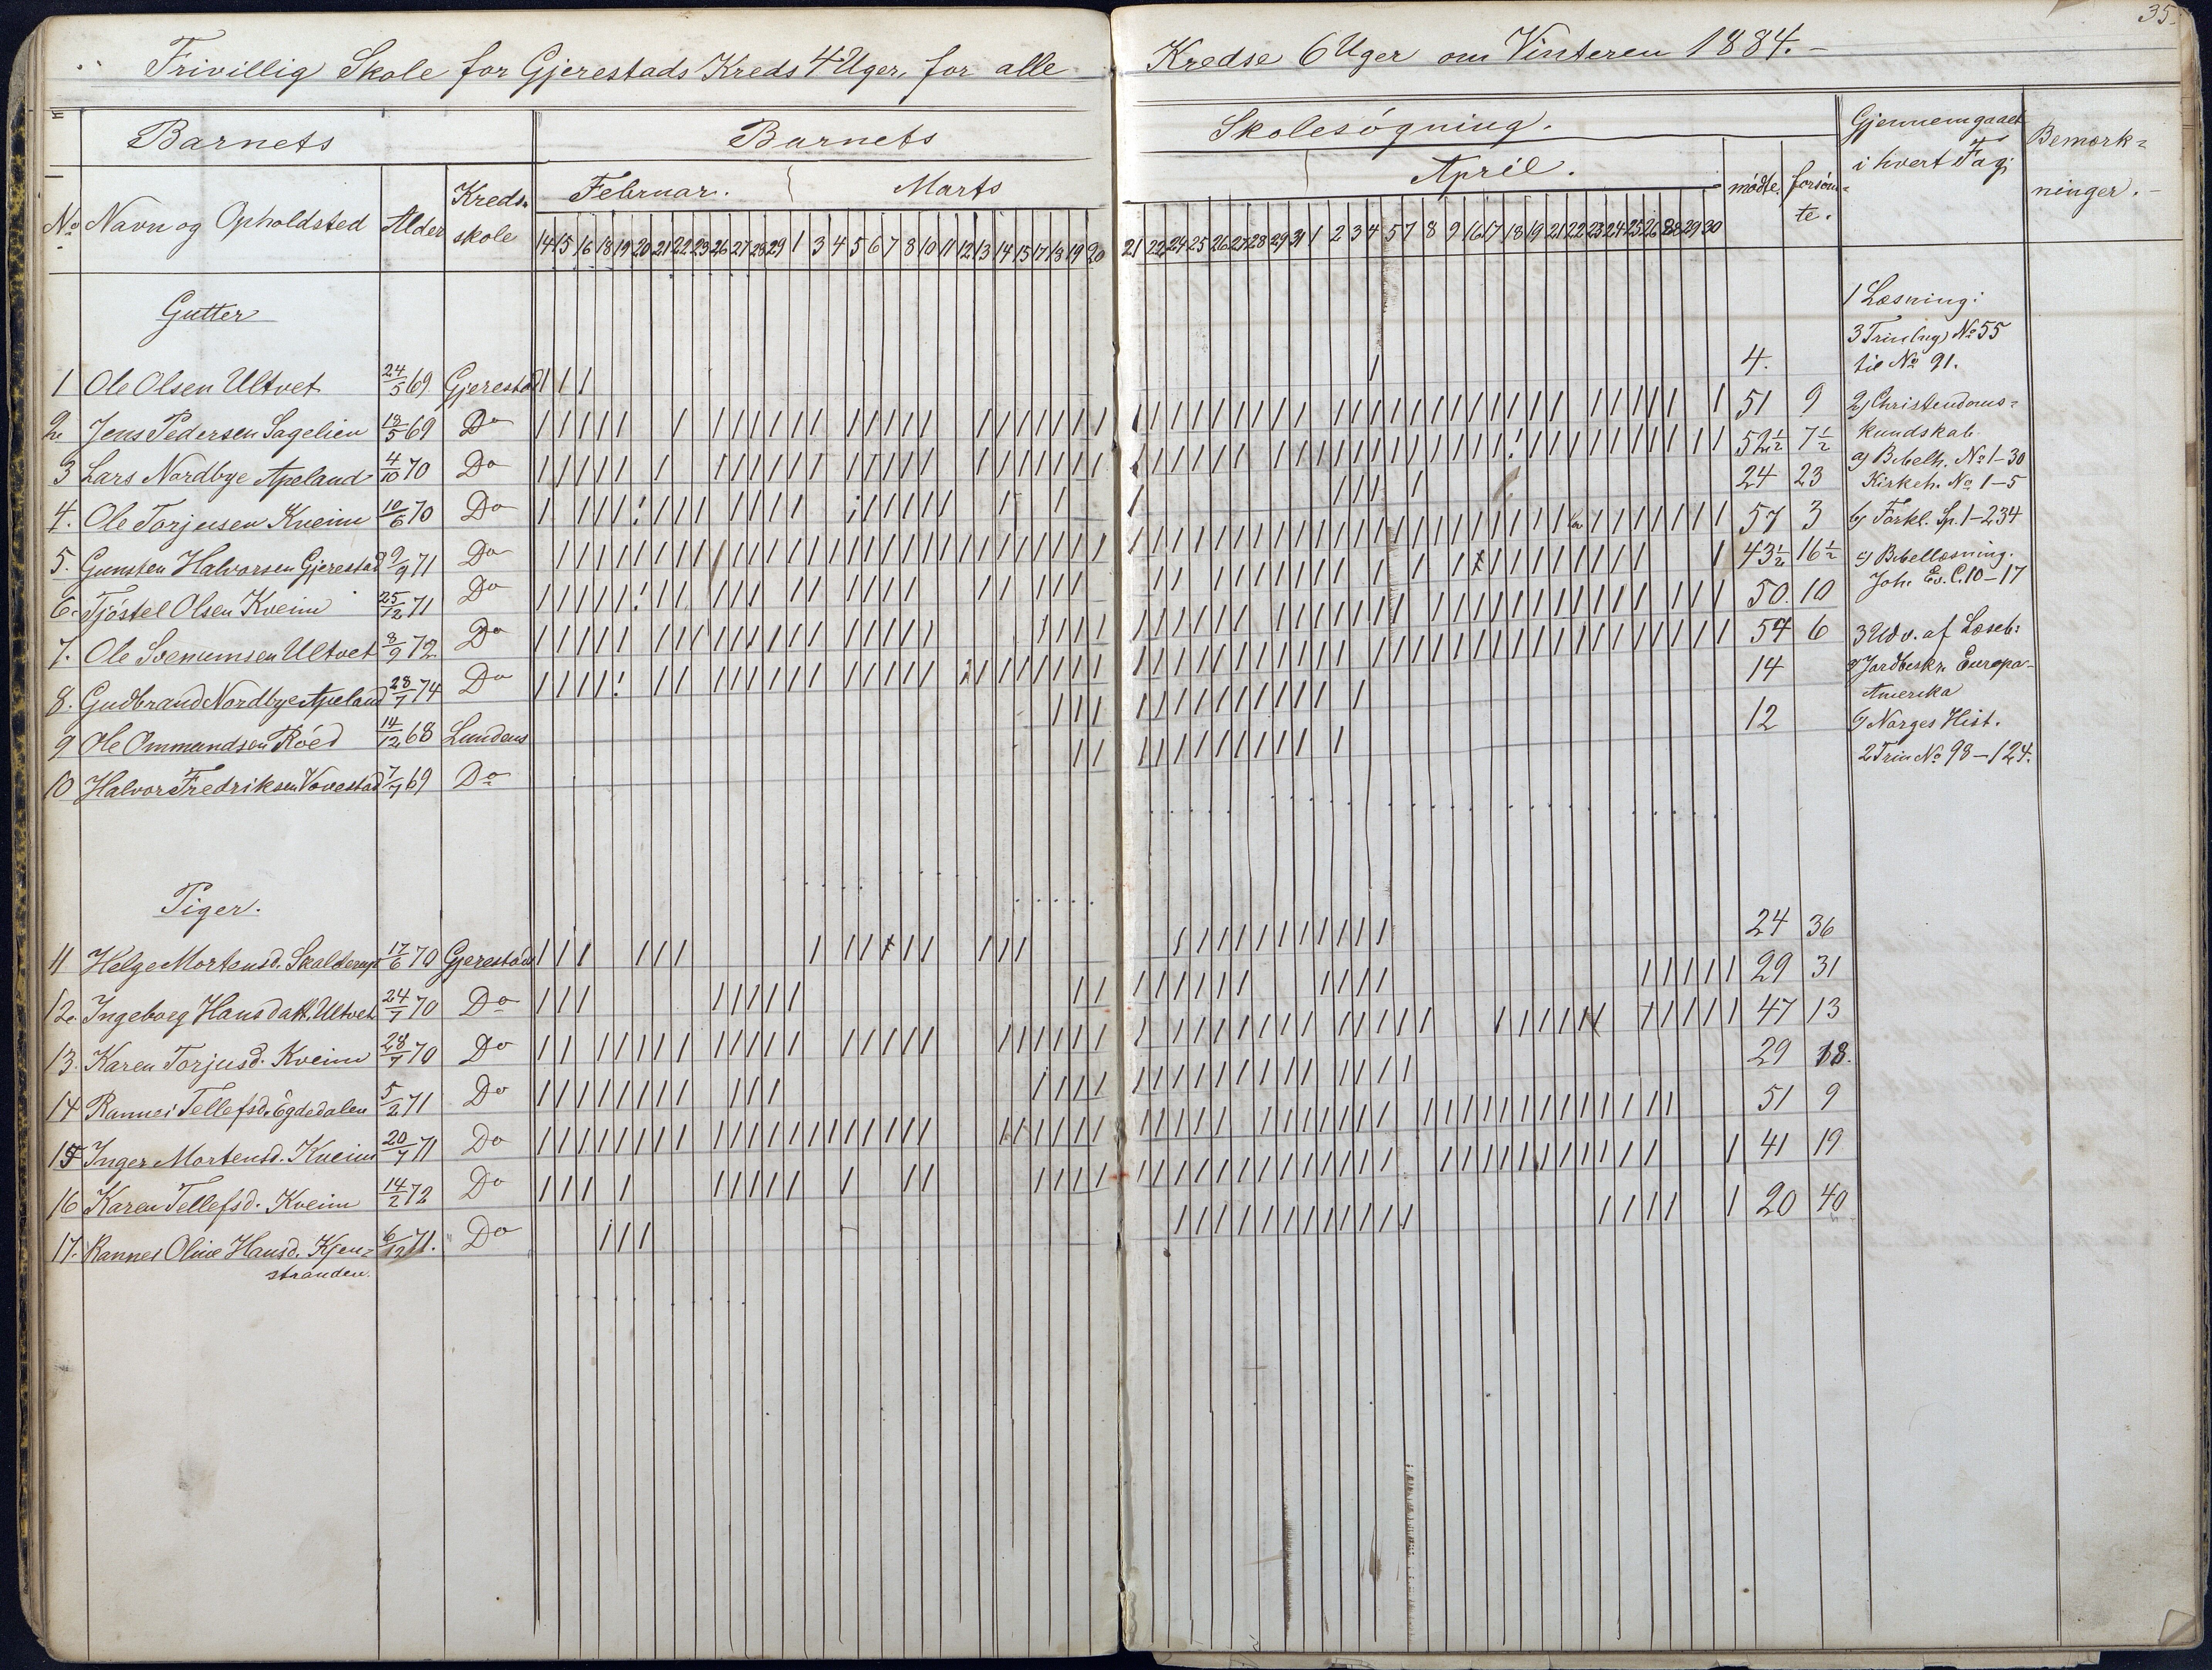 35.
Frivillig Skole for Gjerestads Kreds 4 Uger, for alle Kredse 6 Uger om Vinteren 1884.-
Barnets Barnets Skolesøgning. Gjennemgaaet i hvert Fag. Bemærk=ninger.-
No Navn og Opholdsted Alder Kreds-skole Februar. Marts April. mødte. forsøm=te.
14 15 16 18 19 20 21 22 23 26 27 28 29 1 3 4 5 6 7 8 10 11 12 13 14 15 17 18 19 20 21 22 24 25 26 27 28 29 31 1 2 3 4 5 7 8 9 16 17 18 19 21 22 23 24 25 26 28 29 30
Gutter
1 Ole Olsen Ultvet 24/5 69 Gjerestad 4.
2. Jens Pedersen Sagelien 18/5 69 Do 51 9
3 Lars Nordbye Apeland 4/10 70 Do 52½ 7½
4. Ole Torjusen Kveim 10/6 70 Do 24 23
5. Gunsten Halvorsen Gjerestad 9/9 71 Do 57 3
6. Tjöstel Olsen Kveim 25/12 71 Do 43½ 16½
7. Ole Svenumsen Ultvet 8/9 72 Do 50. 10
8. Gudbrand Nordbye Apeland 28/7 74 Do 54 6
9 Ole Ommundsen Röed 14/12 68 Lundens 14
10 Halvor Fredriksen Vovestad 7/7 69 Do 12
Piger.
11 Helge Mortensd. Skalderup 17/6 70 Gjerestads 24 36
12. Ingeborg Hansdatt. Ultvet 24/7 70 Do 29 31
13. Karen Torjusd. Kveim 28/7 70 Do 47 13
14 Rannei Tellefsd. Egdedalen 5/2 71 Do 29 18.
15 Inger Mortensd. Kveim 20/7 71 Do 51 9
16 Karen Tellefsd. Kveim 14/2 72 Do 41 19
17. Rannei Oline Hansd. Kjen= 6/12 71. Do 20 40
stranden.
1 Læsning:
3 Trin (ny) No 55
til No 91.
2) Christendoms=
kundskab.
a) Bibelh. No 1-30
Kirkeh. No 1-5
b) Forkl. Sp. 1-234
c) Bibellæsning.
Joh. Ev. C. 10-17
3 Udv. af Læseb:
a) Jordbeskr. Europa-
Amerika
b) Norges Hist.
2 Trin No 98-124.